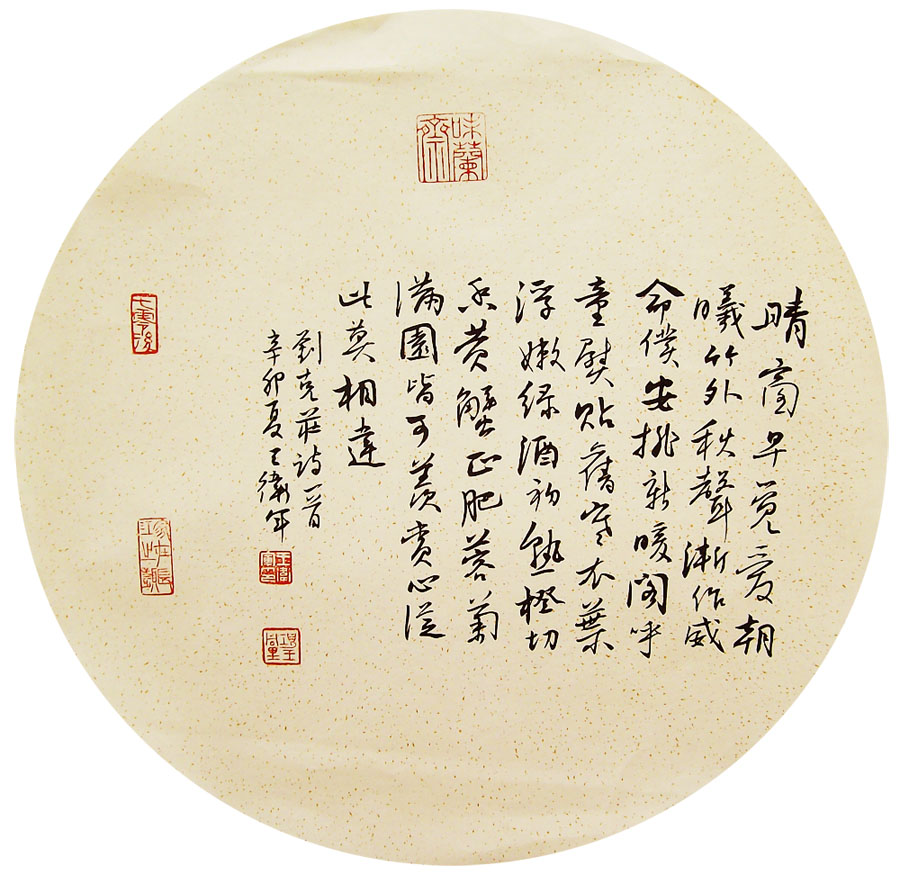 味蘭齋
晴窗早覺愛朝
曦竹外秋聲漸作威
命僕安排新暖閣呼
童熨貼舊寒衣葉
浮嫩綠酒初熟橙切
香黄蟹正肥蓉菊
滿園皆可羨賞心從
此莫相違
劉克莊詩一首
辛卯夏王衛軍